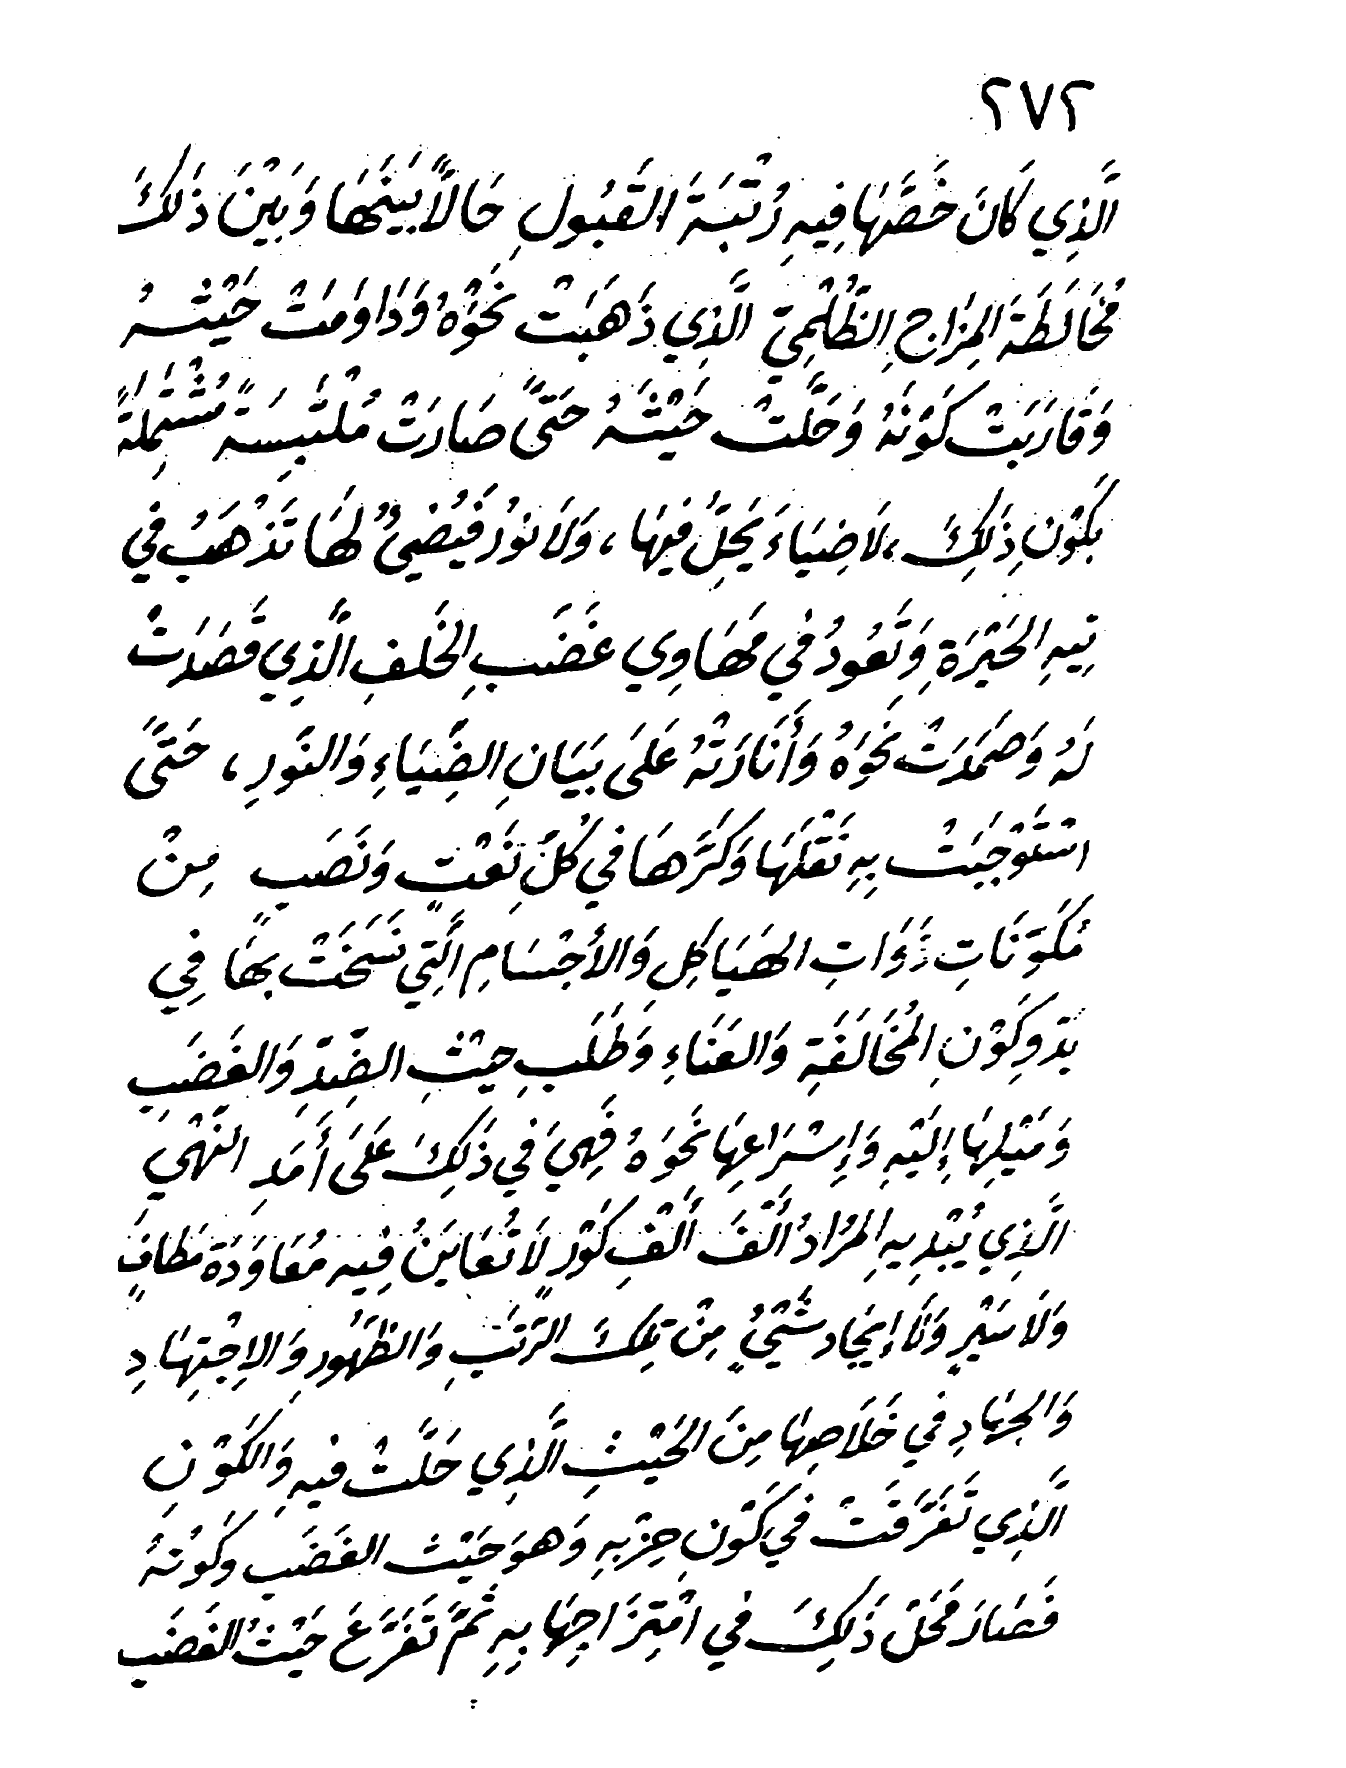 ٢٧٢
الَّذِي كَانَ خَصَّهَا فِيهِ رُتْبَةَ القَبُولِ حَالاً بَيْنَهَا وَبَيْنَ ذَلِكَ
مُخَالَطَةَ المِزَاجِ الظُّلْمِيِّ الَّذِي ذَهَبَتْ نَحْوَهُ وَدَاوَمَتْ حَيْثُهُ
وَقَارَبَتْ كَوْنَهُ وَحَلَّتْ حَيْثُهُ حَتَّى صَارَتْ مُلْتَبِسَةً مُشْتَمِلَةً
بِكَوْنِ ذَلِكَ، لاَ ضِيَاءَ يَحِلُّ فِيهَا، وَلاَ نُورٌ فَيُضِيءُ لَهَا تَذْهَبُ فِي
تِيهِ الحَيْرَةِ وَتَعُودُ فِي مَهَاوِي غَضَبِ الخَلفِ الَّذِي قَصَدَتْ
لَهُ وَصَمَدَتْ نَحْوَهُ وَأَنَارَتْهُ عَلَى بَيَانِ الضِّيَاءِ وَالنُّورِ، حَتَّى
اسْتَوْجَبَتْ بِهِ نَقْلَهَا وَكَرَّهَا فِي كُلِّ نَعْتٍ وَنَصَبٍ مِنْ
مُكَوَّنَاتِ ذَوَاتِ الهَيَاكِلِ وَالأَجْسَامِ الَّتِي نَسَخَتْ بِهَا فِي
بَدْوِ كَوْنِ المُخَالَفَةِ وَالعَنَاءِ وَطَلَبِ حَيْثِ الضِّدِّ وَالغَضَبِ
وَمَيْلِهَا إِلَيْهِ وَإِسْرَاعِهَا نَحْوَهُ فَهِيَ فِي ذَلِكَ عَلَى أَمَدِ النَّهْيِ
الَّذِي يُبْدِيهِ المُرَادُ أَلْفَ أَلْفِ كَوْرٍ لاَ تُعَايِنُ فِيهِ مُعَاوَدَةَ مَطَافٍ
وَلاَ سَيْرٍ وَلاَ إِيجَادِ شَيْءٍ مِنْ تِلْكَ الرُّتَبِ وَالظُّهُورِ وَالاِجْتِهَادِ
وَالجِهَادِ فِي خَلاَصِهَا مِنَ الحَيْثِ الَّذِي حَلَّتْ فِيهِ وَالكَوْنِ
الَّذِي تَفَرَّقَتْ فِي كَوْنِ حِزْبِهِ وَهوَ حَيْثُ الغَضَبِ وَكَوْنُهُ
فَصَارَ مَحَلُّ ذَلِكَ فِي امْتِزَاجِهَا بِهِ ثُمَّ تَفَرَّعَ حَيْثُ الغَضَبِ